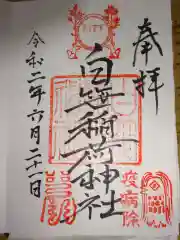 奉拝
白笹稲荷神社
令和二年六月二十一日
疫病除